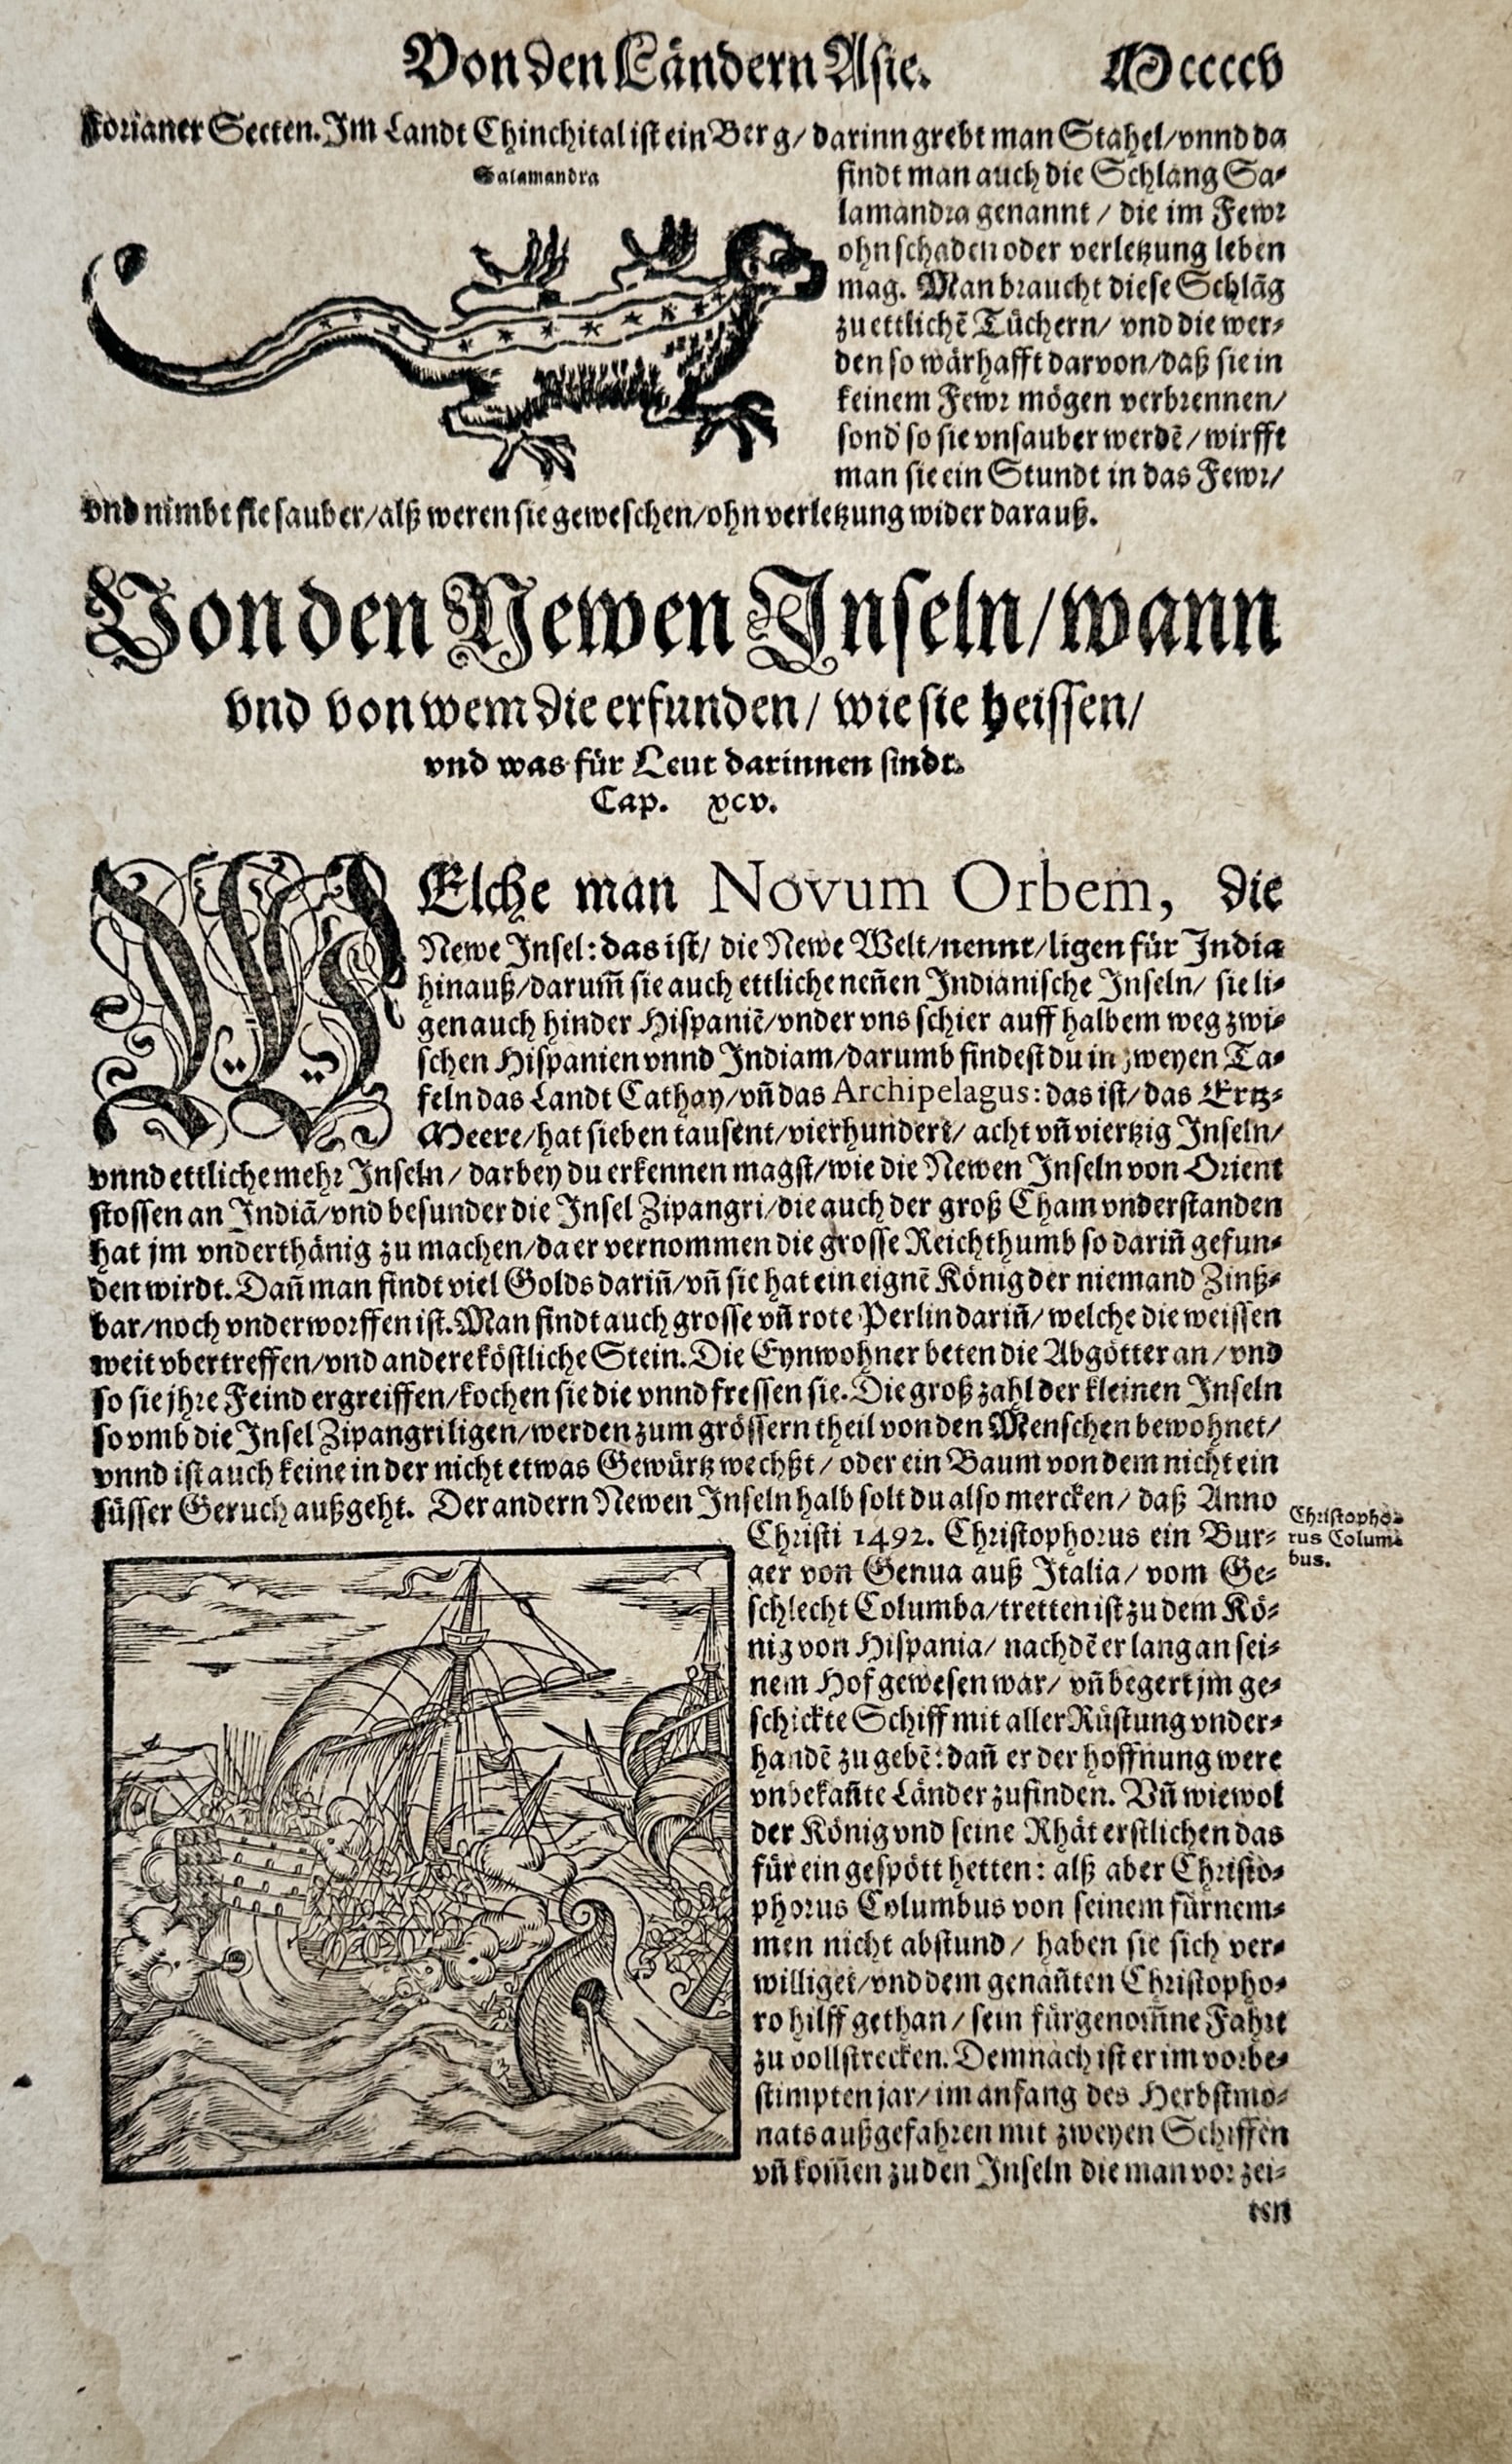 Von den Ländern Asie.
Mccccv
storianer Secten. Im Landt Chinchital ist ein Berg/ darinn grebt man Stahel/ vnnd da
Salamandra
findt man auch die Schlang Sa⸗
lamandra genannt / die im Fewr
ohn schaden oder verletzung leben
mag. Man braucht diese Schlāg
zu ettlichē Tüchern/ vnd die wer⸗
den so wärhafft darvon/ daß sie in
keinem Fewr mögen verbrennen/
sond so sie vnsauber werdē / wirfft
man sie ein Stundt in das Fewr/
vnd nimbt sie sauber/ alß weren sie geweschen/ ohn verletzung wider darauß.
Von den Newen Inseln/ wann
vnd von wem die erfunden/ wie sie heissen/
vnd was für Leut darinnen sindt.
Cap. xcv.
WElche man Novum Orbem, die
Newe Insel: das ist/ die Newe Welt/ nennt/ ligen für India
hinauß/ darum̄ sie auch ettliche nen̄en Indianische Inseln/ sie li⸗
gen auch hinder Hispaniē/ vnder vns schier auff halbem weg zwi⸗
schen Hispanien vnnd Indiam/ darumb findest du in zweyen Ta⸗
feln das Landt Cathay/ vn̄ das Archipelagus: das ist/ das Ertz⸗
Meere/ hat sieben tausent/ vierhundert/ acht vn̄ viertzig Inseln/
vnnd ettliche mehr Inseln/ darbey du erkennen magst/ wie die Newen Inseln von Orient
stossen an Indiā/ vnd besunder die Insel Zipangri/ die auch der groß Cham vnderstanden
hat jm vnderthänig zu machen/ da er vernommen die grosse Reichthumb so darin̄ gefun⸗
den wirdt. Dan̄ man findt viel Golds darin̄/ vn̄ sie hat ein eignē König der niemand Zinß⸗
bar/ noch vnderworffen ist. Man findt auch grosse vn̄ rote Perlin darin̄/ welche die weissen
weit vbertreffen/ vnd andere köstliche Stein. Die Eynwohner beten die Abgötter an/ vnd
so sie jhre Feind ergreiffen/ kochen sie die vnnd fressen sie. Die groß zahl der kleinen Inseln
so vmb die Insel Zipangri ligen/ werden zum grössern theil von den Menschen bewohnet/
vnnd ist auch keine in der nicht etwas Gewürtz wechßt/ oder ein Baum von dem nicht ein
süsser Geruch außgeht. Der andern Newen Inseln halb solt du also mercken/ daß Anno
Christopho⸗
rus Colum⸗
bus.
Christi 1492. Christophorus ein Bur⸗
ger von Genua auß Italia/ vom Ge⸗
schlecht Columba/ tretten ist zu dem Kö⸗
nig von Hispania/ nachdē er lang an sei⸗
nem Hof gewesen war/ vn̄ begert jm ge⸗
schickte Schiff mit aller Rüstung vnder⸗
handē zu gebē: dan̄ er der hoffnung were
vnbekan̄te Länder zufinden. Vn̄ wiewol
der König vnd seine Rhät erstlichen das
für ein gespött hetten: alß aber Christo⸗
phorus Columbus von seinem fürnem⸗
men nicht abstund/ haben sie sich ver⸗
williget/ vnd dem genan̄ten Christopho⸗
ro hilff gethan/ sein fürgenom̄ne Fahrt
zu vollstrecken. Demnach ist er im vorbe⸗
stimpten jar/ im anfang des Herbstmo⸗
nats außgefahren mit zweyen Schiffen
vn̄ kom̄en zu den Inseln die man vor zei⸗
ten